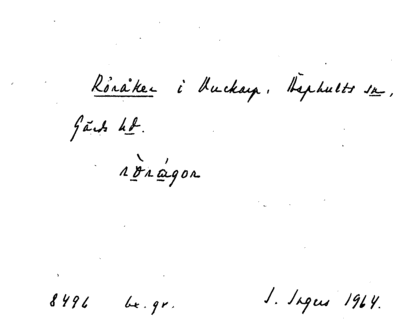 Röråker i Huckarp, Äsphults sn,
Gärds hd.
rö̀rágor
8496 be. gr. I. Ingers 1964.